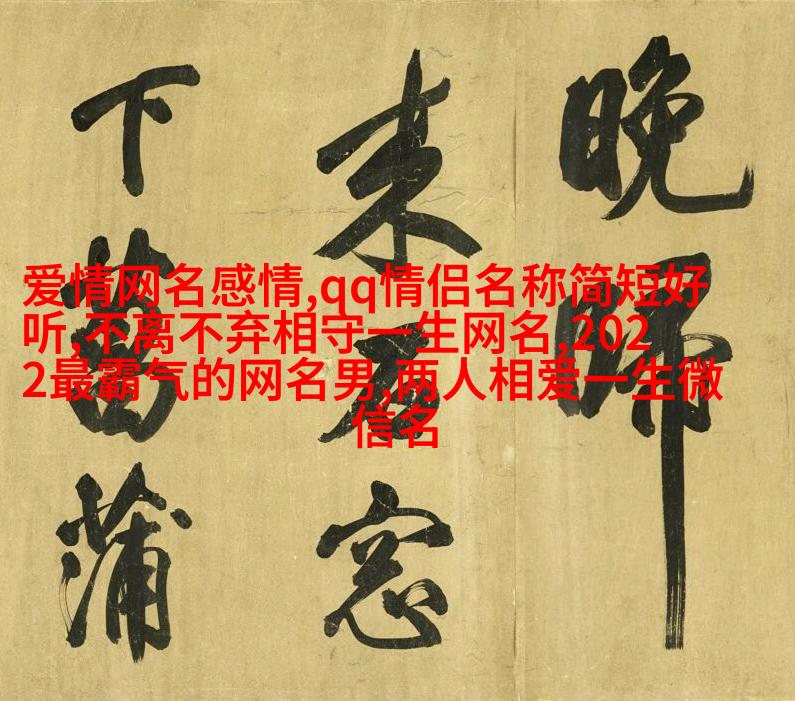 晚歸
来石窓
下菖蒲
爱情网名感情,qq情侣名称简短好
听,不离不弃相守一生网名,202
2最霸气的网名男,两人相爱一生微
信名